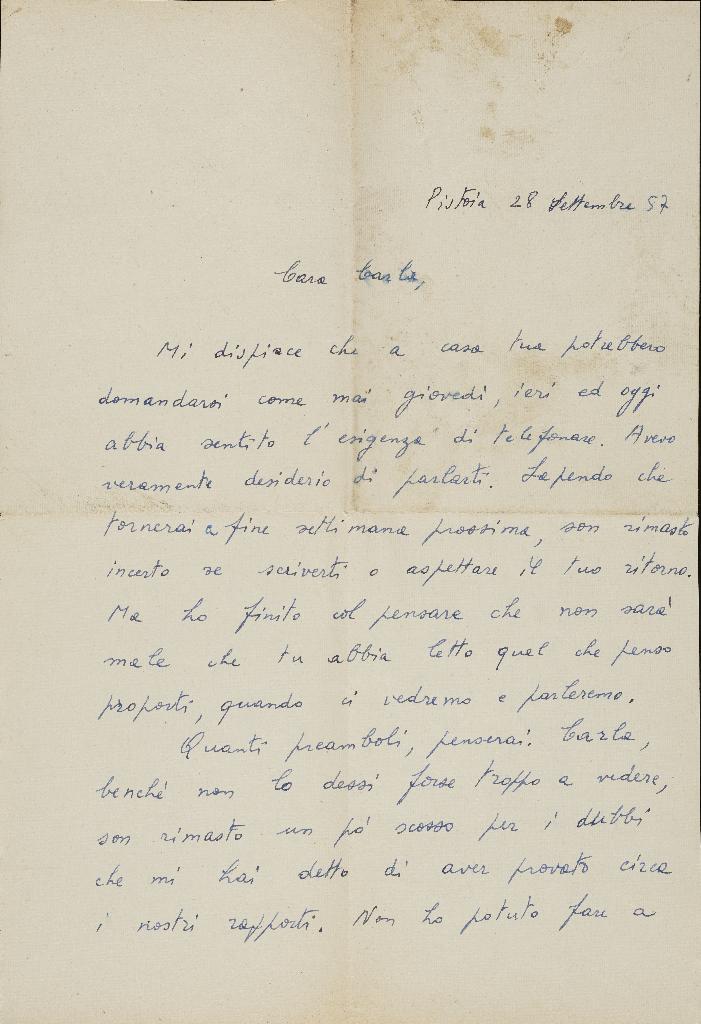 Pistoia 28 Settembre 57
Cara Carla,
Mi dispiace che a casa tua potrebbero
domandarsi come mai giovedì, ieri ed oggi
abbia sentito l'esigenza di telefonare. Avevo
veramente desiderio di parlarti. Sapendo che
tornerai a fine settimana prossima, son rimasto
incerto se scriverti o aspettare il tuo ritorno.
Ma ho finito col pensare che non sarà
male che tu abbia letto quel che penso
proporti, quando ci vedremo e parleremo.
Quanti preamboli, penserai. Carla,
benché non lo dessi forse troppo a vedere,
son rimasto un pò scosso per i dubbi
che mi hai detto di aver provato circa
i nostri rapporti. Non ho potuto fare a